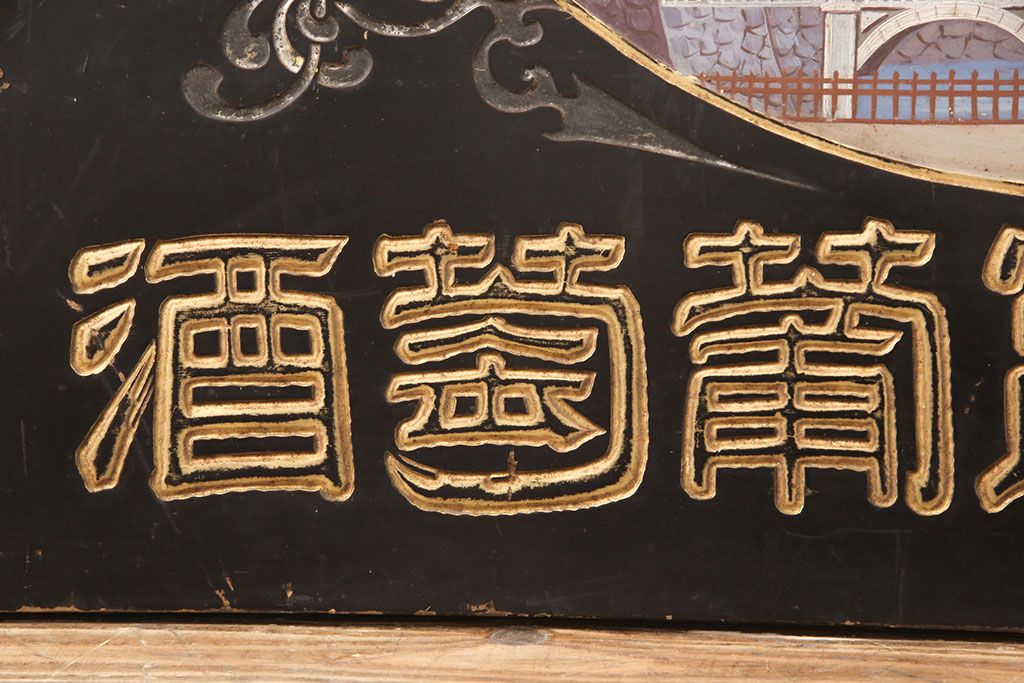 酒萄葡